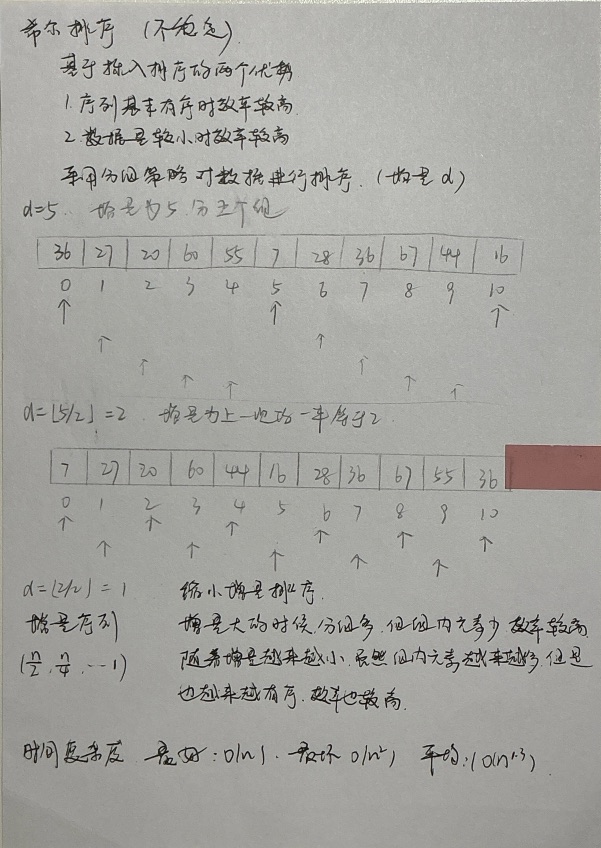 希尔排序 (不稳定)
基于插入排序的两个优势
1. 序列基本有序时效率较高
2. 数据量较小时效率较高
采用分组策略对数据进行排序. (增量d)
d=5. 增量为5. 分五个组
36 27 20 60 55 7 28 36 67 44 16
0 1 2 3 4 5 6 7 8 9 10
d=⌊5/2⌋=2. 增量为上一次的一半等于2.
7 27 20 60 44 16 28 36 67 55 36
0 1 2 3 4 5 6 7 8 9 10
d=⌊2/2⌋=1 缩小增量排序.
增量序列 增量大的时候,分组多,但组内元素少 效率较高
(n/2, n/4, ...1) 随着增量越来越小.虽然组内元素越来越多,但是
也越来越有序.效率也较高.
时间复杂度 最好:O(n). 最坏O(n²) 平均:(O(n^1.3)